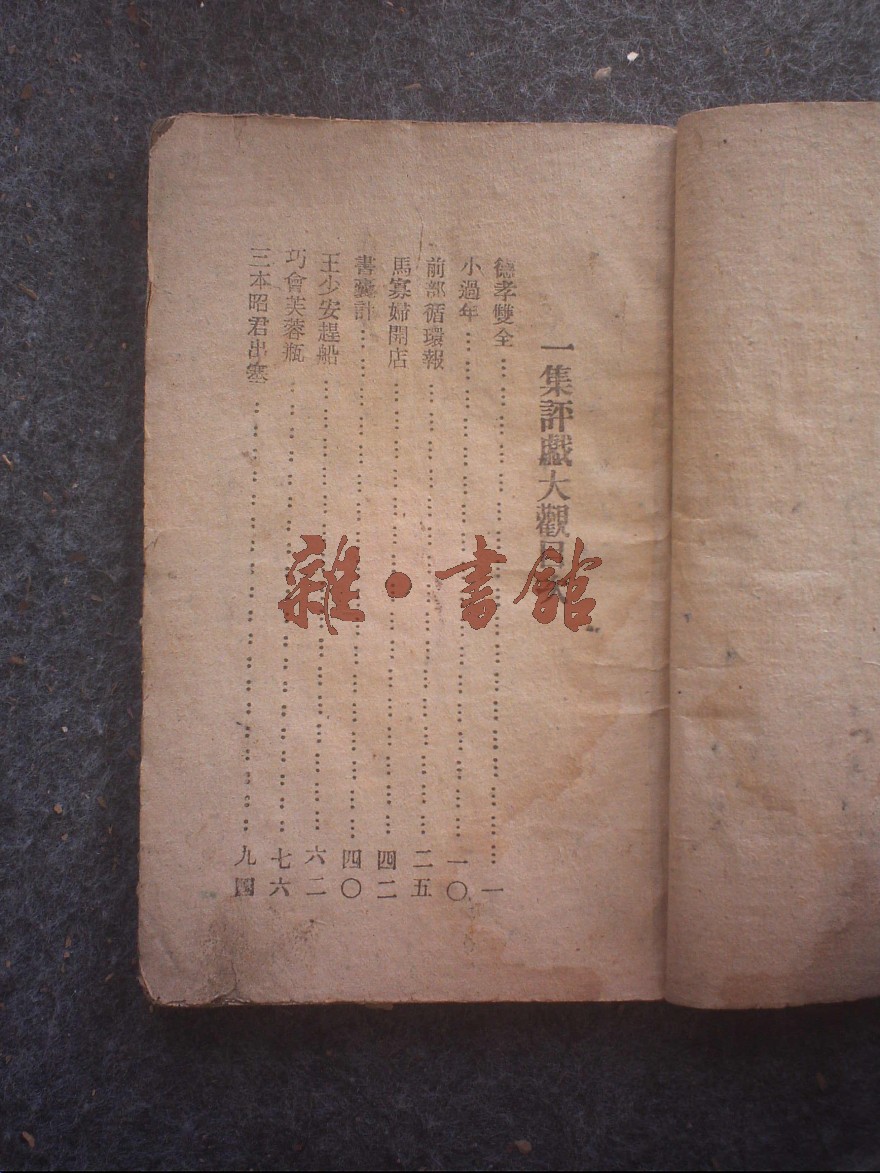 一集評戲大觀目次
德孝雙全 一
小過年 一〇
前部循環報 二五
馬寡婦開店 四二
書囊計 四〇
王少安趕船 六二
巧會芙蓉瓶 七六
三本昭君出塞 九四
雜·書館